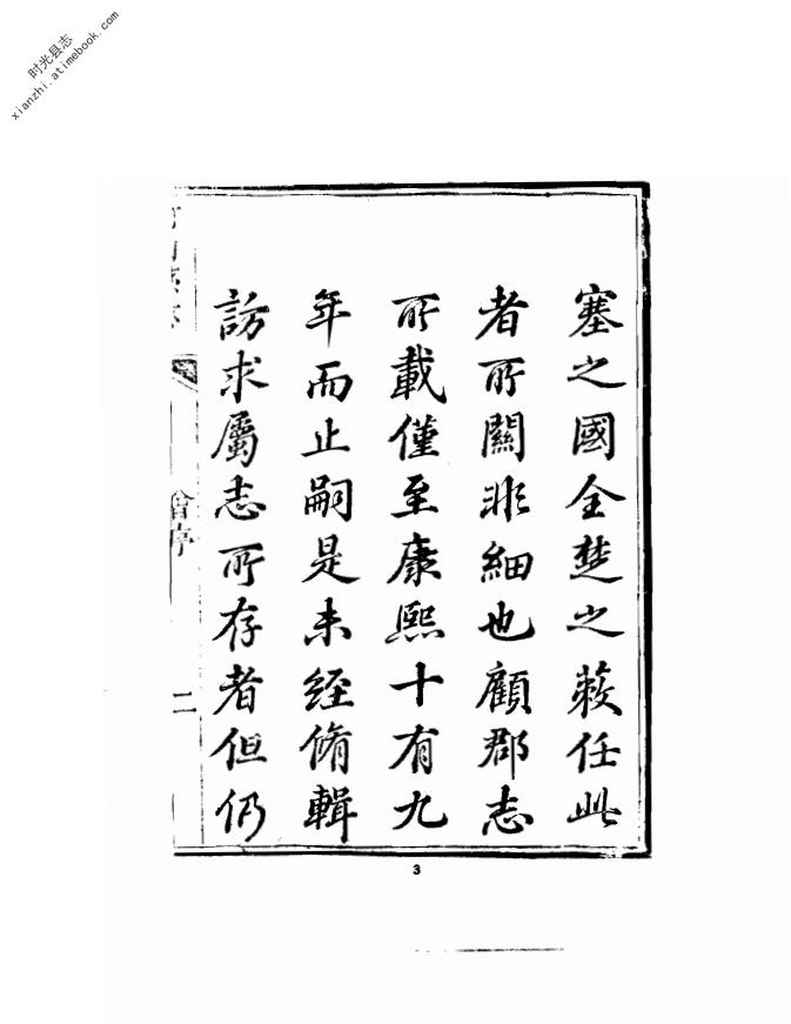 时光县志
xianzhi.atimebook.com
塞之國全楚之蔽任此
者所關非細也顧郡志
所載僅至康熙十有九
年而止嗣是未經脩輯
訪求屬志所存者但仍
曾序
二
3